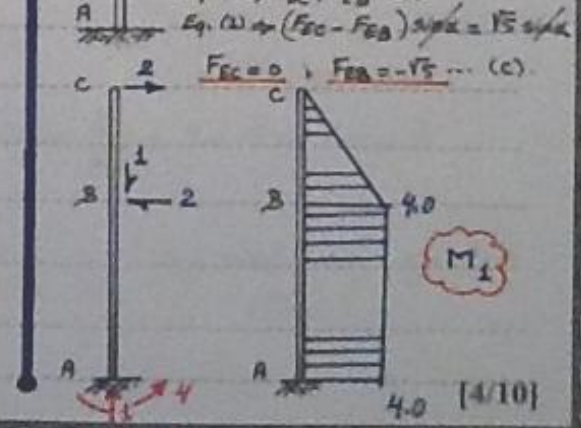 A
Eq. (2) ⇒ (F_EC - F_EB) sin α = √5 sin α
F_EC = 0 , F_EB = -√5 ... (C)
C 2 C
1
B 2 B 4.0
M_1
A 4 A
1
4.0 [4/10]